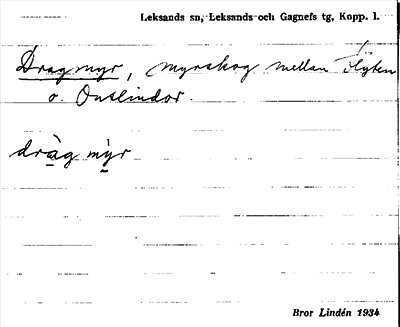 Leksands sn, Leksands och Gagnefs tg, Kopp. l.
Dragmyr, myrskog mellan Flyten
o. Onslindor.
dràg mỳr
Bror Lindén 1934